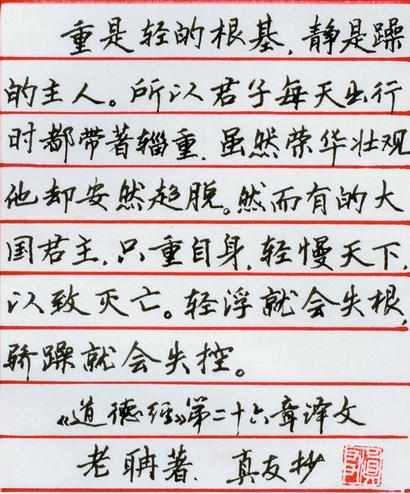 重是轻的根基,静是躁
的主人。所以君子每天出行
时都带著辎重.虽然荣华壮观
他却安然超脱。然而有的大
国君主,只重自身,轻慢天下,
以致灭亡。轻浮就会失根,
骄躁就会失控。
《道德经》第二十六章译文
老聃著.真友抄